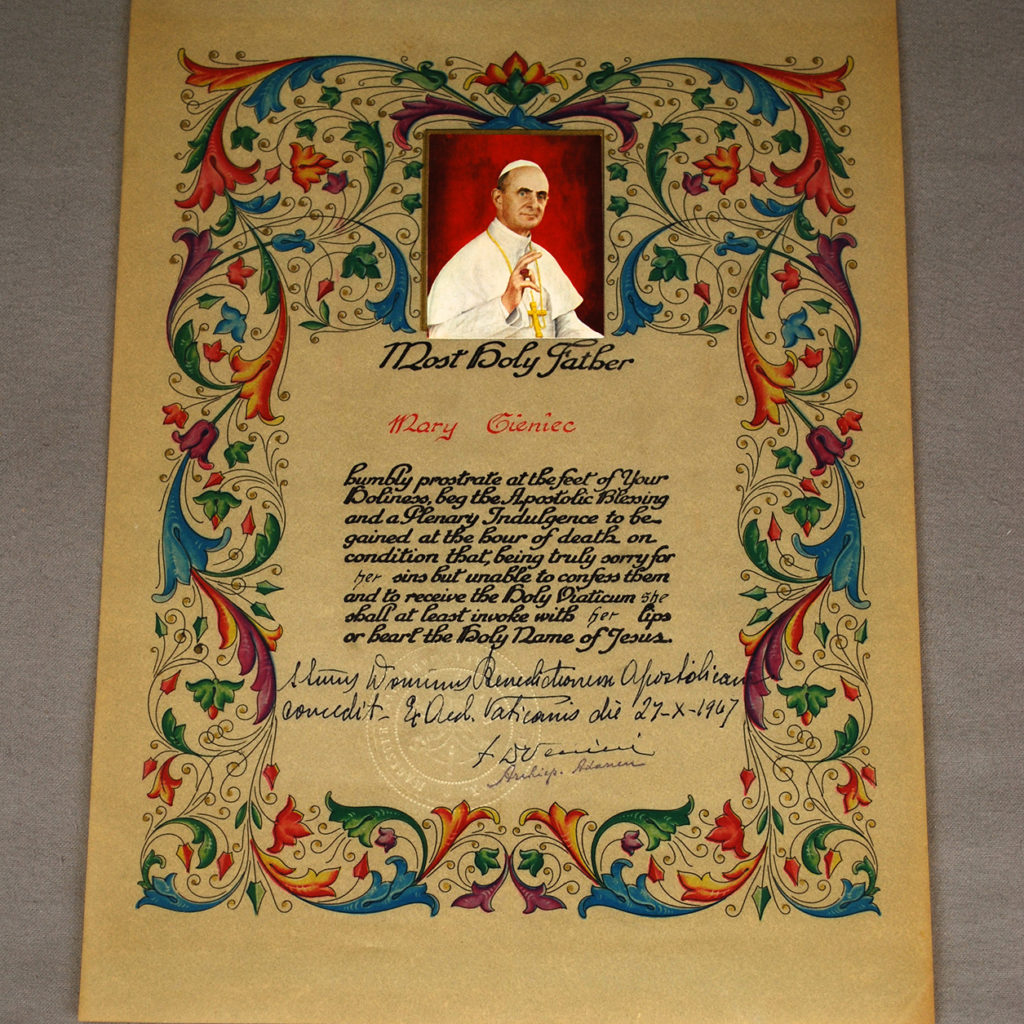 Most Holy Father
Mary Cieniec
humbly prostrate at the feet of Your
Holiness, beg the Apostolic Blessing
and a Plenary Indulgence to be
gained at the hour of death on
condition that, being truly sorry for
her sins but unable to confess them
and to receive the Holy Viaticum she
shall at least invoke with her lips
or heart the Holy Name of Jesus.
Dominus Benedictionem Apostolicam
concedit - Ex Aed. Vaticanis die 27-X-1967
Archiep. Adanen